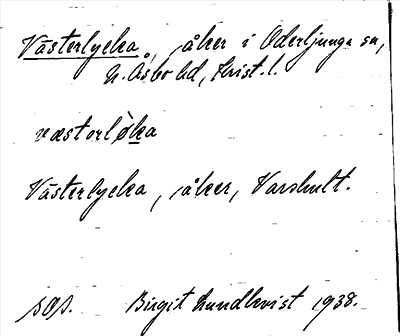 Västerlycka, åker i Oderljunga sn,
N. Åsbo hd, Krist. l.
væstərlỳka
Västerlycka, åker, Varshult.
Birgit Lundkvist 1938.